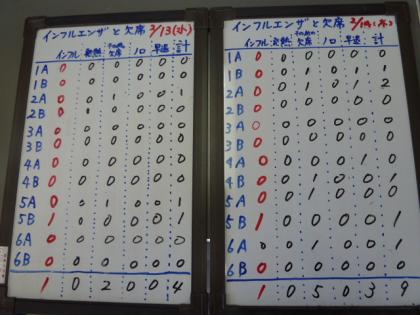 インフルエンザ と 欠席 2/13(水)
インフル 発熱 その他の欠席 ノロ 早退 計
1A 0 0 0 0 0 0
1B 0 0 0 0 0 0
2A 0 0 1 0 0 1
2B 0 0 0 0 0 0
3A 0 0 0 0 0 0
3B 0 0 0 0 0 0
4A 0 0 0 0 0 0
4B 0 0 0 0 0 0
5A 0 0 1 0 0 1
5B 1 0 0 0 0 1
6A 0 0 0 0 0 0
6B 0 0 0 0 0 0
1 0 2 0 0 4
インフルエンザ と 欠席 2/14(木)
インフル 発熱 その他の欠席 ノロ 早退 計
1A 0 0 0 0 0 0
1B 0 0 1 0 1 1
2A 0 0 1 0 1 2
2B 0 0 0 0 0 0
3A 0 0 0 0 0 0
3B 0 0 0 0 0 0
4A 0 0 0 0 1 0
4B 0 0 1 0 0 1
5A 0 0 1 0 0 0
5B 1 0 0 0 0 1
6A 0 0 1 0 0 1
6B 0 0 0 0 0 0
1 0 5 0 3 9